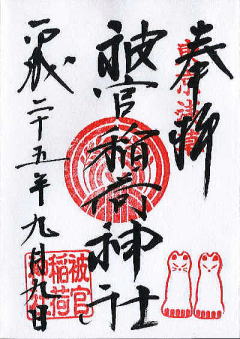 奉拝
被官稲荷神社
平成二十五年九月九日
被官
稲荷